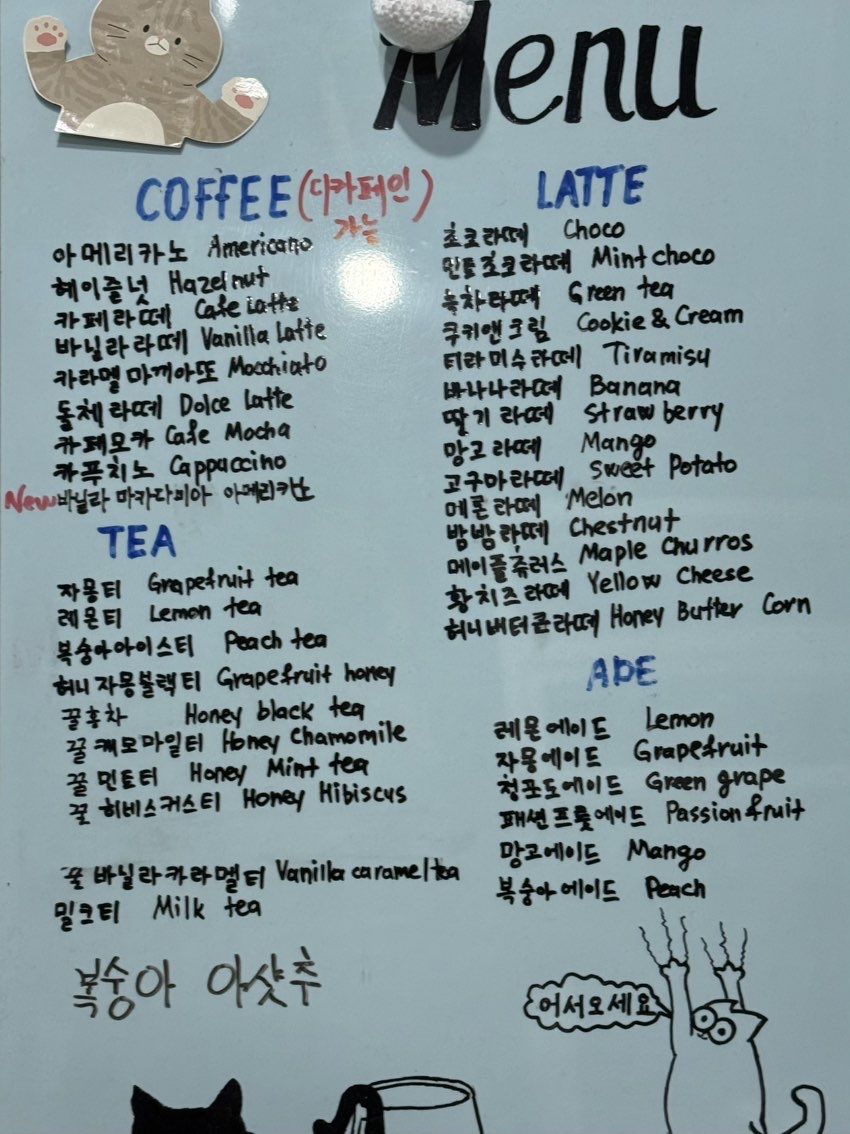 Menu
COFFEE (디카페인 가능)
아메리카노 Americano
헤이즐넛 Hazelnut
카페라떼 Cafe Latte
바닐라라떼 Vanilla Latte
카라멜마끼아또 Mocchiato
돌체라떼 Dolce Latte
카페모카 Cafe Mocha
카푸치노 Cappuccino
New 바닐라 마카다미아 아메리카노
TEA
자몽티 Grapefruit tea
레몬티 Lemon tea
복숭아아이스티 Peach tea
허니자몽블랙티 Grapefruit honey
꿀홍차 Honey black tea
꿀캐모마일티 Honey Chamomile
꿀민트티 Honey Mint tea
꿀히비스커스티 Honey Hibiscus
꿀바닐라카라멜티 Vanilla caramel tea
밀크티 Milk tea
복숭아 아샷추
LATTE
초코라떼 Choco
민트초코라떼 Mint choco
녹차라떼 Green tea
쿠키앤크림 Cookie & Cream
티라미수라떼 Tiramisu
바나나라떼 Banana
딸기라떼 Strawberry
망고라떼 Mango
고구마라떼 Sweet Potato
메론라떼 Melon
밤밤라떼 Chestnut
메이플츄러스 Maple Churros
황치즈라떼 Yellow Cheese
허니버터콘라떼 Honey Butter Corn
ADE
레몬에이드 Lemon
자몽에이드 Grapefruit
청포도에이드 Green grape
패션프룻에이드 Passionfruit
망고에이드 Mango
복숭아에이드 Peach
어서오세요